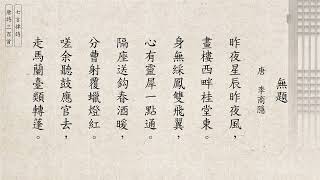 無題
唐 李商隱
昨夜星辰昨夜風，
畫樓西畔桂堂東。
身無綵鳳雙飛翼，
心有靈犀一點通。
隔座送鉤春酒暖，
分曹射覆蠟燈紅。
嗟余聽鼓應官去，
走馬蘭臺類轉蓬。
七言律詩
唐詩三百首